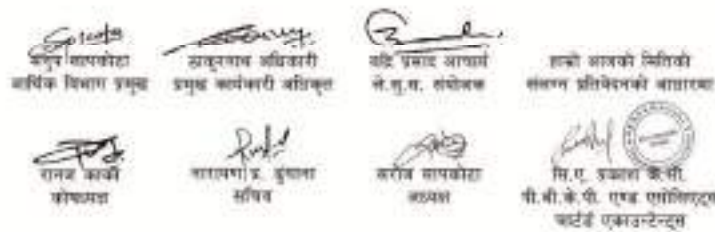 सापकोटा
आर्थिक विभाग प्रमुख
ठाकुरनाथ अधिकारी
प्रमुख कार्यकारी अधिकृत
बद्रि प्रसाद आचार्य
ले.सु.स. संयोजक
हाम्रो आजको मितिको
संलग्न प्रतिवेदनको आधारमा
कार्की
कोषाध्यक्ष
नारायण प्र. ढुंगाना
सचिव
सरोज सापकोटा
अध्यक्ष
सि.ए. प्रकाश के.सी.
पी.बी.के.पी. एण्ड एसोसिएट्स
चार्टर्ड एकाउन्टेन्ट्स